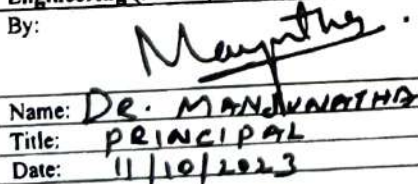 By:
Name: DR. MANJUNATHA
Title: PRINCIPAL
Date: 11/10/2023